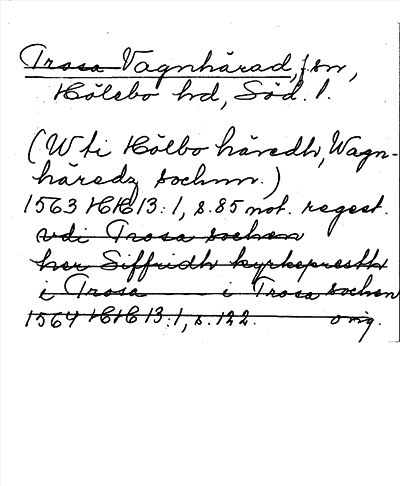 Trosa Vagnhärad, sn,
Hölebo hd, Söd. l.
(W ti Hölbo häredh, Wagn-
häredz sochnn.)
1563 HH 13:1, s. 85 not. regest.
vdi Trosa sochen
her Siffridh kyrkepresth
i Trosa i Trosa sochen
1564 HH 13:1, s. 122. orig.